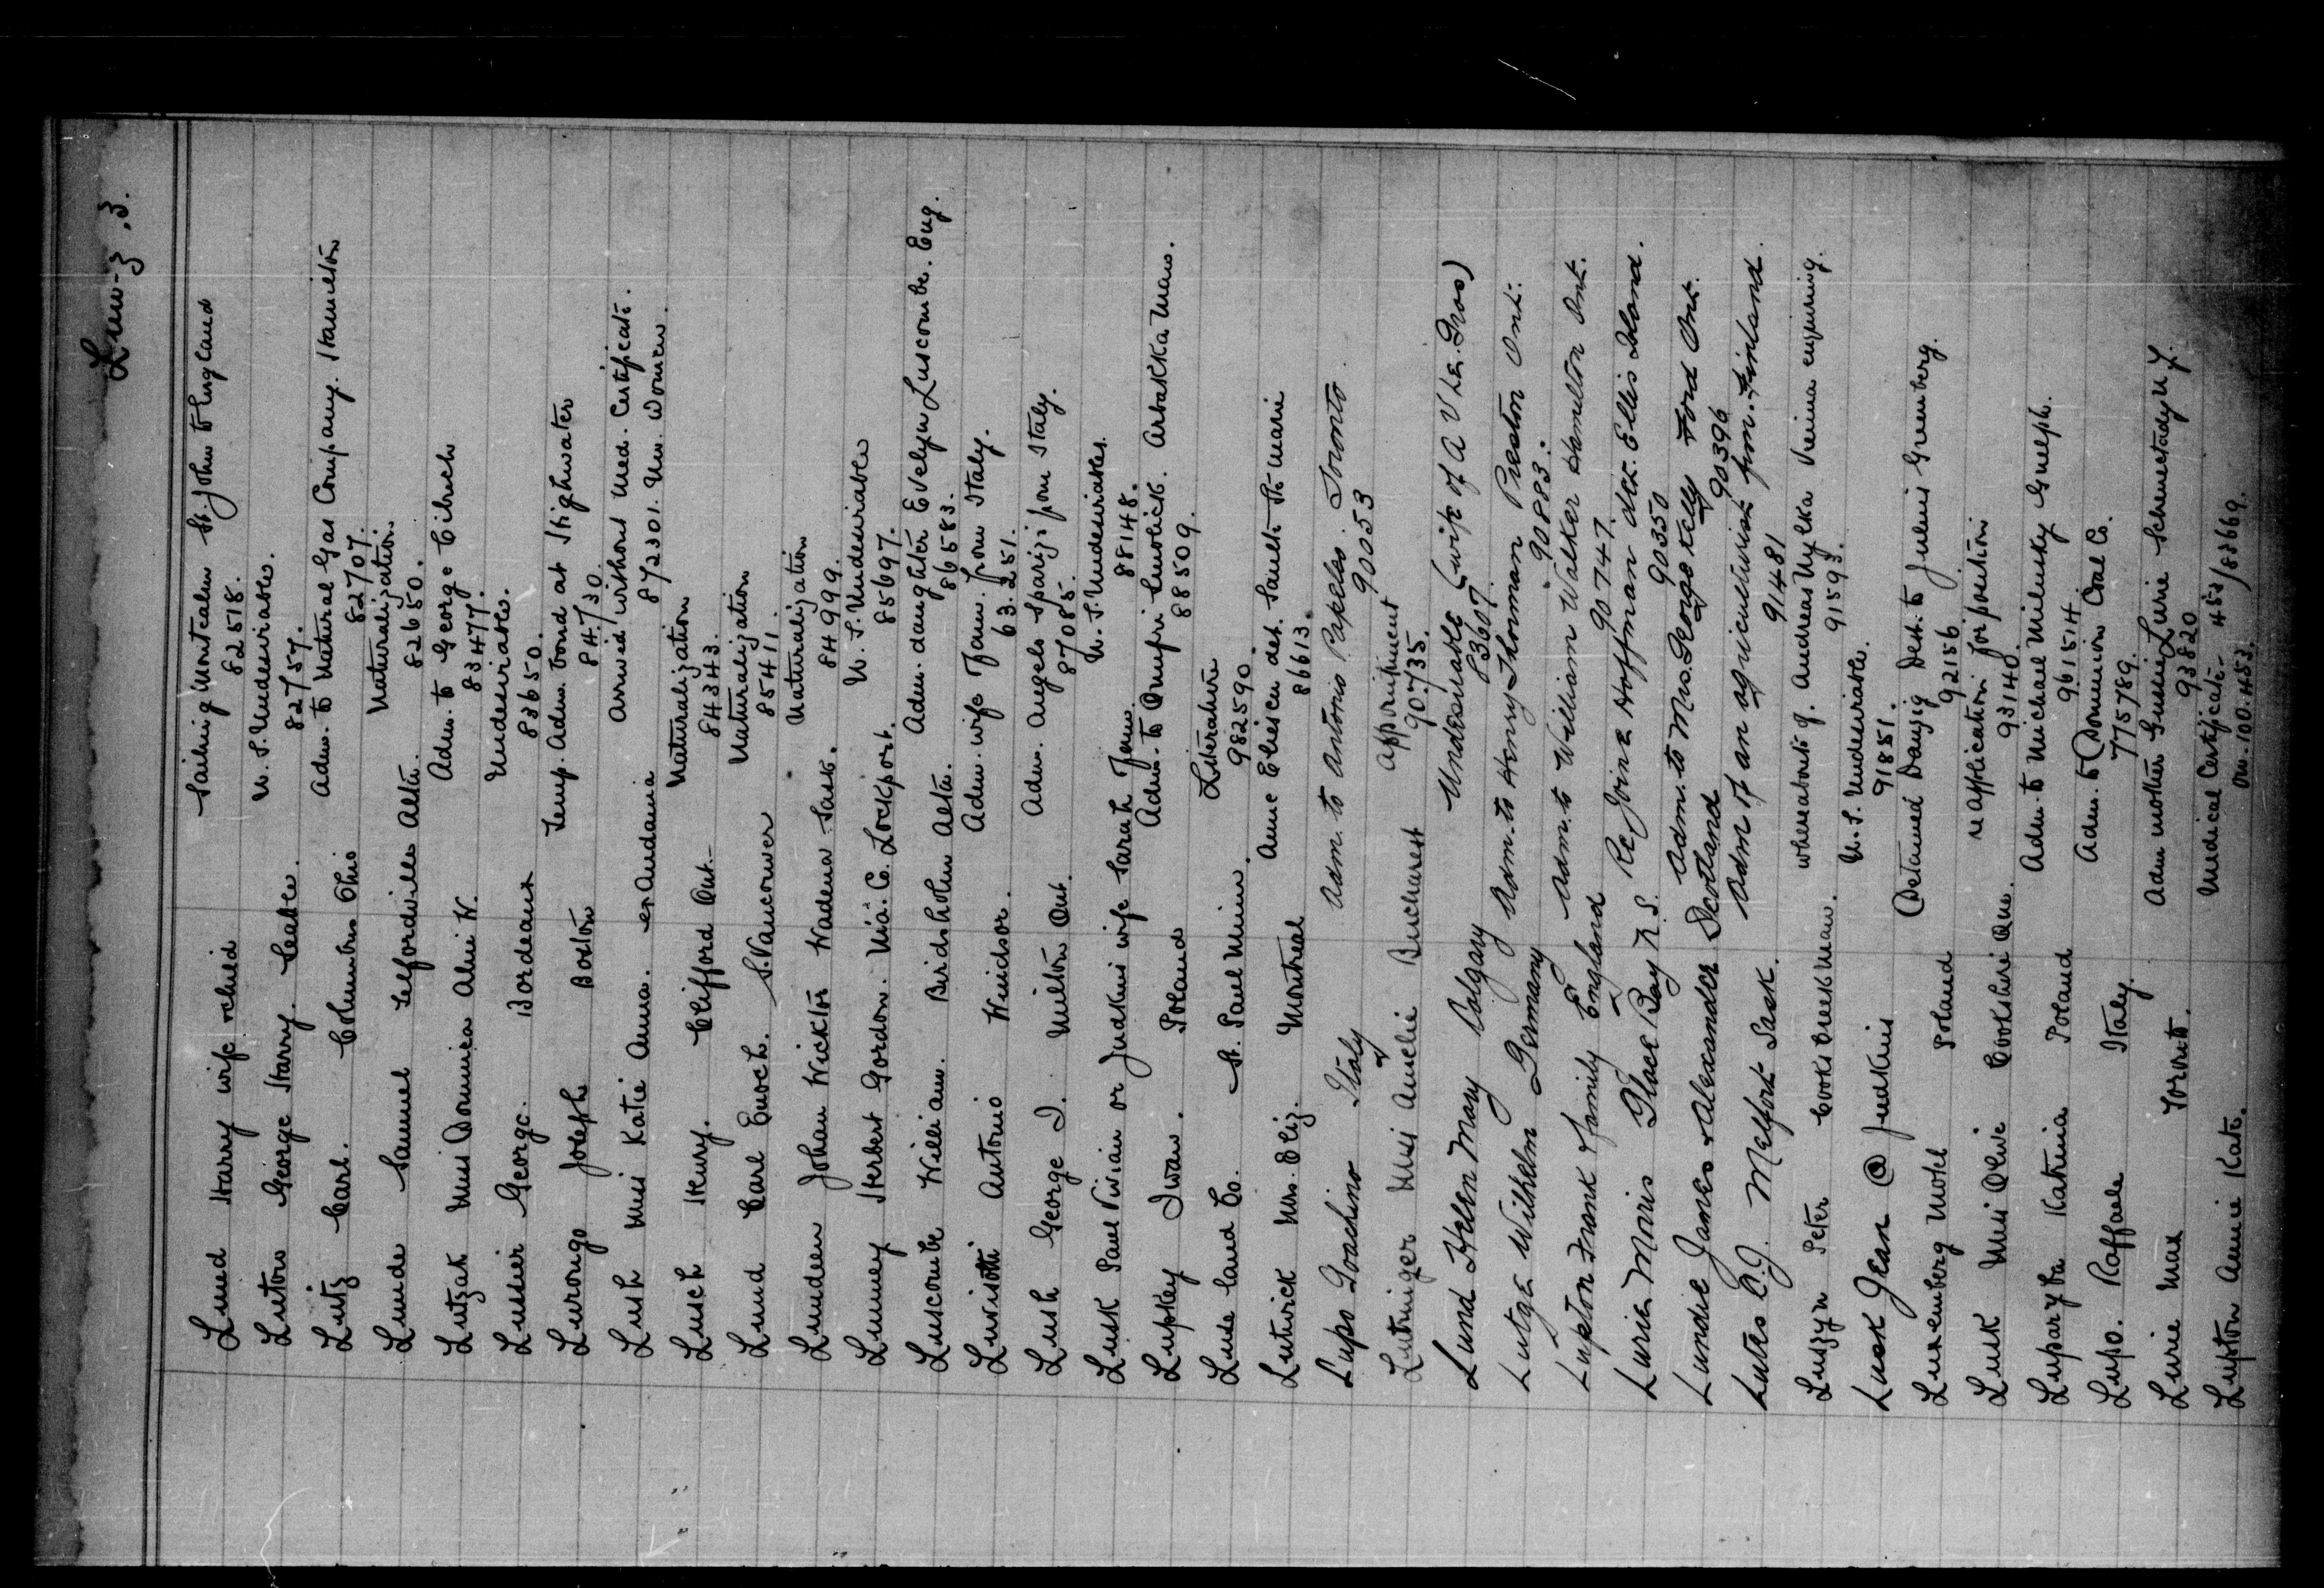 Lum-z .3.
Lund Harry wife & child Sailing Montcalm St. John to England
82518.
Luton George Harry. Seattle. U.S. Undesirables.
82757.
Lutz Carl. Columbus Ohio Adm. to Natural Gas Company. Hamilton
82707.
Lunde Samuel Telfordville Alta. Naturalization
82650.
Lutzak Miss Dominica Alni W. Adm. to George Cibuch
83477.
Lussier George. Bordeaux Undesirables.
83650.
Lurongo Joseph Boston Temp. Adm. Bond at Highwater
84730.
Lush Miss Katie Anna. ex Andania Arrived without Med. Certificate.
872301. Un. Women.
Lusch Henry. Clifford Ont. Naturalization
84343.
Lund Carl Enoch. S. Vancouver Naturalization
85411.
Lunden Johan Wickton Wadena Sask. Naturalization
84999.
Lumney Herbert Gordon. Nia. Co. Lockport. U.S. Undesirables
85697.
Luscombe William. Birdsholm Alta. Adm. daughter Evelyn Luscombe. Eng.
86583.
Luvisotti Antonio Windsor. Adm. wife & fam. from Italy.
63.251.
Lush George I. Milton Ont. Adm. Angelo Sparizi from Italy.
87085.
Lusk Paul Vivian or Judkins wife Sarah Jean. U.S. Undesirables.
88148.
Lupkey Iwan. Poland Adm. to Onufri Arbakka Man.
88509.
Luse Land Co. St. Paul Minn. Literature
982590.
Lutwick Mrs. Eliz. Montreal Anne det. Sault St. Marie
86613.
Lupo Goachino Italy Adm. to Antonio Papeleo. Toronto.
90053
Lutninger Miss Amelie Bucharest Appointment
90735.
Lund Helen Mary Calgary Undesirable (wife of A V Le. Gros)
83607.
Lutge Wilhelm Germany Adm. to Henry Thorman Preston Ont.
90883.
Lupton Frank & family England Adm. to William Walker Hamilton Ont.
90747.
Lurie Morris Glace Bay N.S. Re Joine Hoffman det. Ellis Island.
90350
Lundie James & Alexander Scotland Adm. to Mrs. George Kelly Ford Ont.
90396
Lutes C.J. Melfort Sask. Adm of an agriculturist from Finland.
91481
Luszyn Peter Cooks Creek Man. whereabouts of Andreas Mylka Vienna enquiring.
91593.
Lusk Jean @ Judkins U.S. Undesirable.
91851.
Luxemberg Motel Poland Detained Danzig Dest. to Julius Greenberg.
92156
Lusk Miss Olive Cookshire Que. re application for position
93140.
Luparyba Katrina Poland Adm. to Michael Milinsky Guelph.
96154.
Lupo. Raffaele Italy. Adm. to Dominion Coal Co.
775789.
Lurie Max Toronto. Adm mother Lurie Schenectady N.Y.
93820
Lupton Annie Kate. Medical Certificate 453/83669.
Om-100.453.